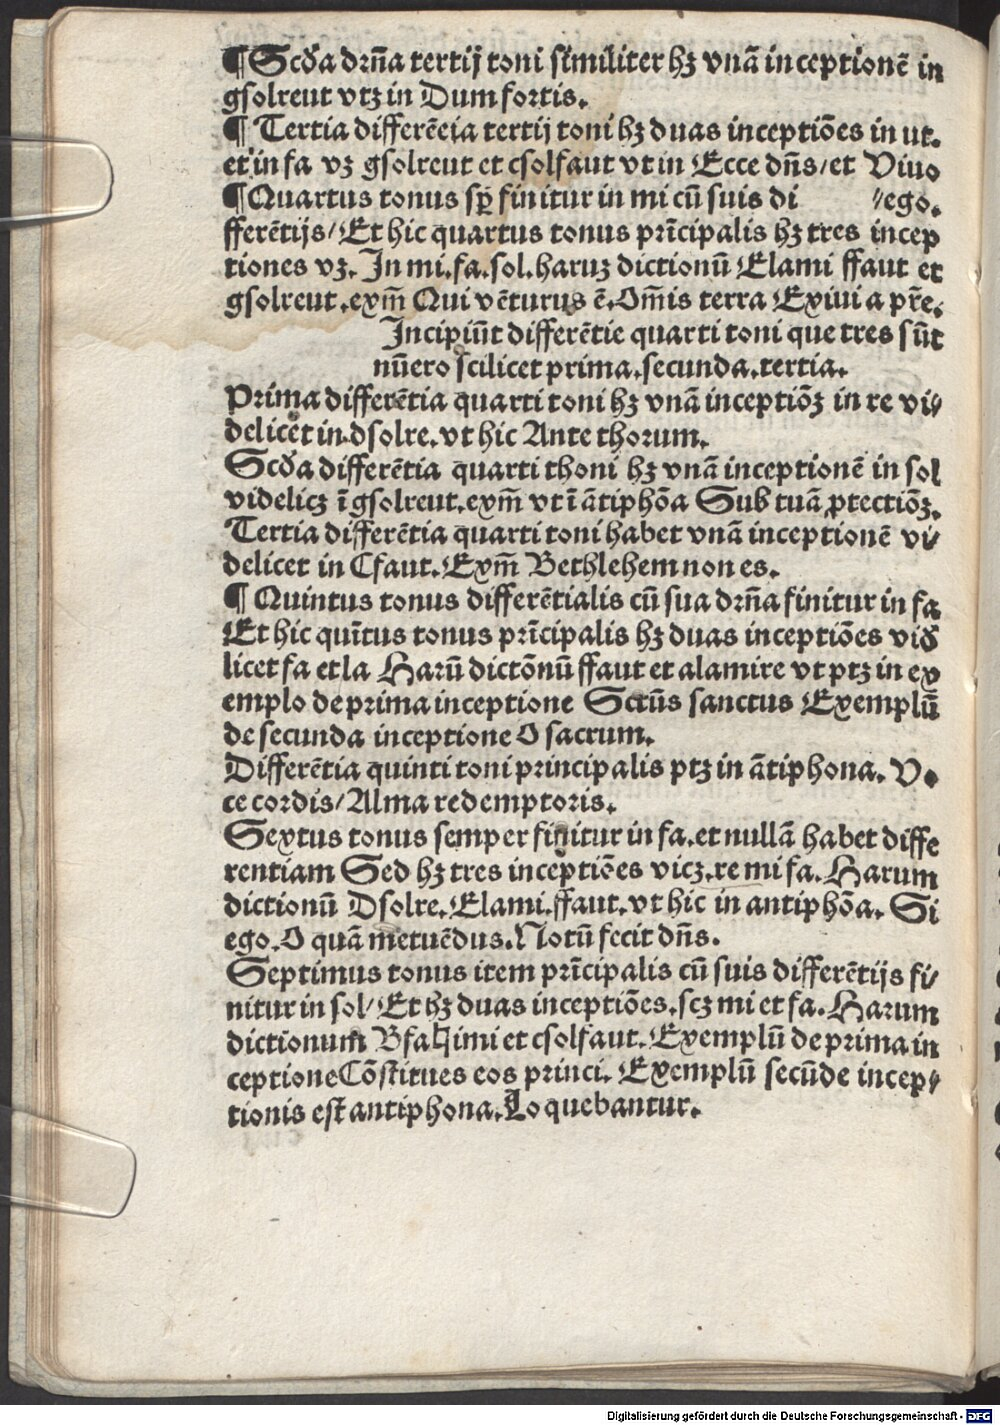 ¶ Scd̄a drn̄a tertij toni similiter hꝫ vnā inceptionē in
gsolreut vtꝫ in Dum fortis.
¶ Tertia differēeia tertij toni hꝫ duas inceptiōes in ut.
et in fa vꝫ gsolreut et csolfaut vt in Ecce dn̄s/et Viuo
¶ Quartus tonus sꝑ finitur in mi cū suis di ⸗ego.
fferētijs/Et hic quartus tonus prīcipalis hꝫ tres incep
tiones vꝫ. In mi.fa.sol.haruꝫ dictionū Elami ffaut et
gsolreut.exm̄ Qui vēturus ē.Om̄is terra Exiui a pr̄e.
Incipiūt differētie quarti toni que tres sūt
nūero scilicet prima.secunda.tertia.
Prima differētia quarti toni hꝫ vnā inceptiōꝫ in re vi⸗
delicet in.dsolre.vt hic Ante thorum.
Scd̄a differētia quarti thoni hꝫ vnā inceptionē in sol
videlicꝫ ī gsolreut.exm̄ vt ī ātiphōa Sub tuā ꝓtectiōꝫ.
Tertia differētia quarti toni habet vnā inceptionē vi⸗
delicet in Cfaut.Exm̄ Bethlehem non es.
¶ Quintus tonus differētialis cū sua drn̄a finitur in fa
Et hic quītus tonus prīcipalis hꝫ duas inceptiōes vid̄
licet fa et la Harū dictōnū ffaut et alamire vt ptꝫ in ex
emplo de prima inceptione Sctūs sanctus Exemplū
de secunda inceptione O sacrum.
Differētia quinti toni principalis ptꝫ in ātiphona. Vo
ce cordis/Alma redemptoris.
Sextus tonus semper finitur in fa.et nullā habet diffe
rentiam Sed hꝫ tres inceptiōes vicꝫ.re mi fa.Harum
dictionū Dsolre.Elami.ffaut.vt hic in antiphōa. Si
ego.O quā metuēdus.Notū fecit dn̄s.
Septimus tonus item prīcipalis cū suis differētijs fi⸗
nitur in sol/Et hꝫ duas inceptiōes.scꝫ mi et fa.Harum
dictionum Bfa♮mi et csolfaut.Exemplū de prima in
ceptione Cōstitues eos princi. Exemplū secūde incep⸗
tionis est antiphona.Loquebantur.
Digitalisierung gefördert durch die Deutsche Forschungsgemeinschaft - DFG